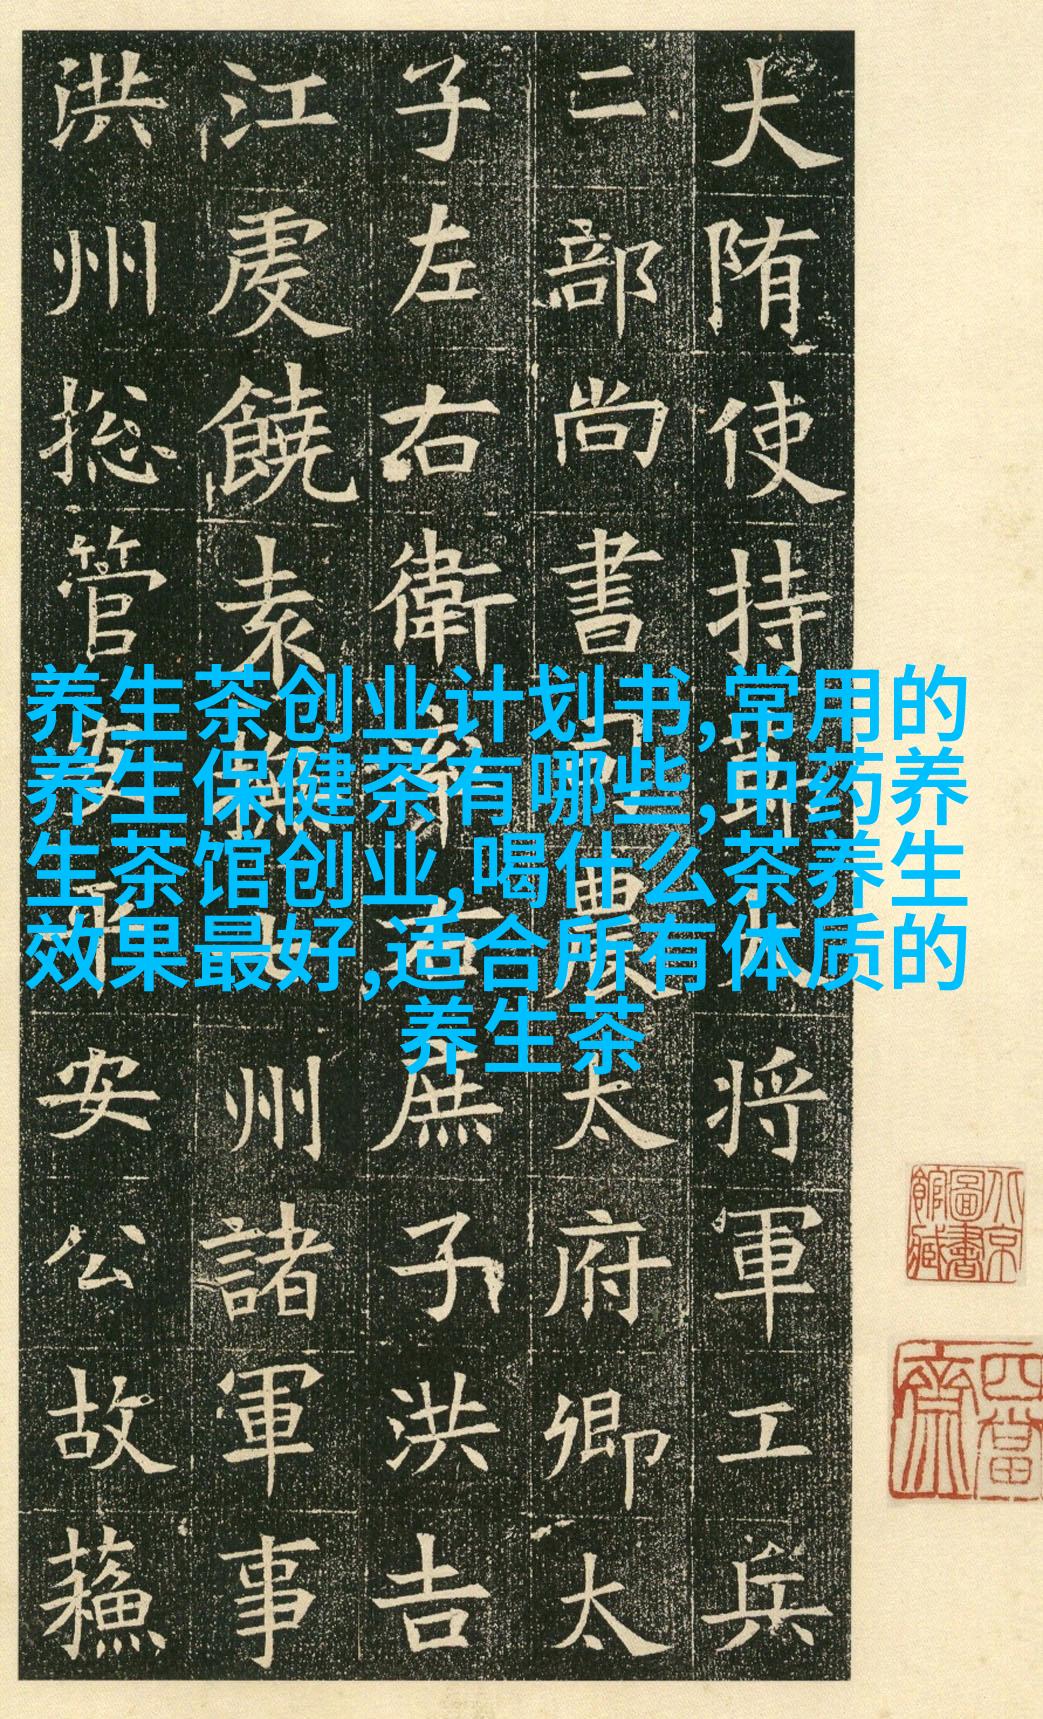 养生茶创业计划书,常用的
养生保健茶有哪些,中药养
生茶馆创业,喝什么茶养生
效果最好,适合所有体质的
养生茶
大陏使持節將軍工兵
二部尚書司農太府卿太
子左右衛率右庶子洪吉
江虔饒袁撫州諸軍事
洪州揔管安平安公故蘓
北京圖書館藏
四當齋